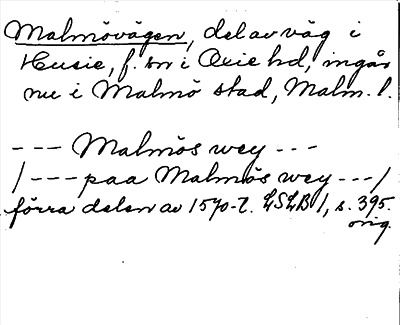 Malmövägen, del av väg i
Husie, f. sn i Oxie hd, ingår
nu i Malmö stad, Malm. l.
--- Malmös wey ---
/---paa Malmös wey ---/
förra delen av 1570-t. LSLB 1, s. 395.
orig.